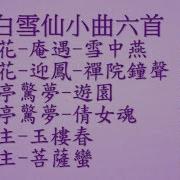 白雪仙小曲六首
花-庵遇-雪中燕
花-迎鳳-禪院鐘聲
亭驚夢-遊園
亭驚夢-倩女魂
主-玉樓春
主-菩薩蠻